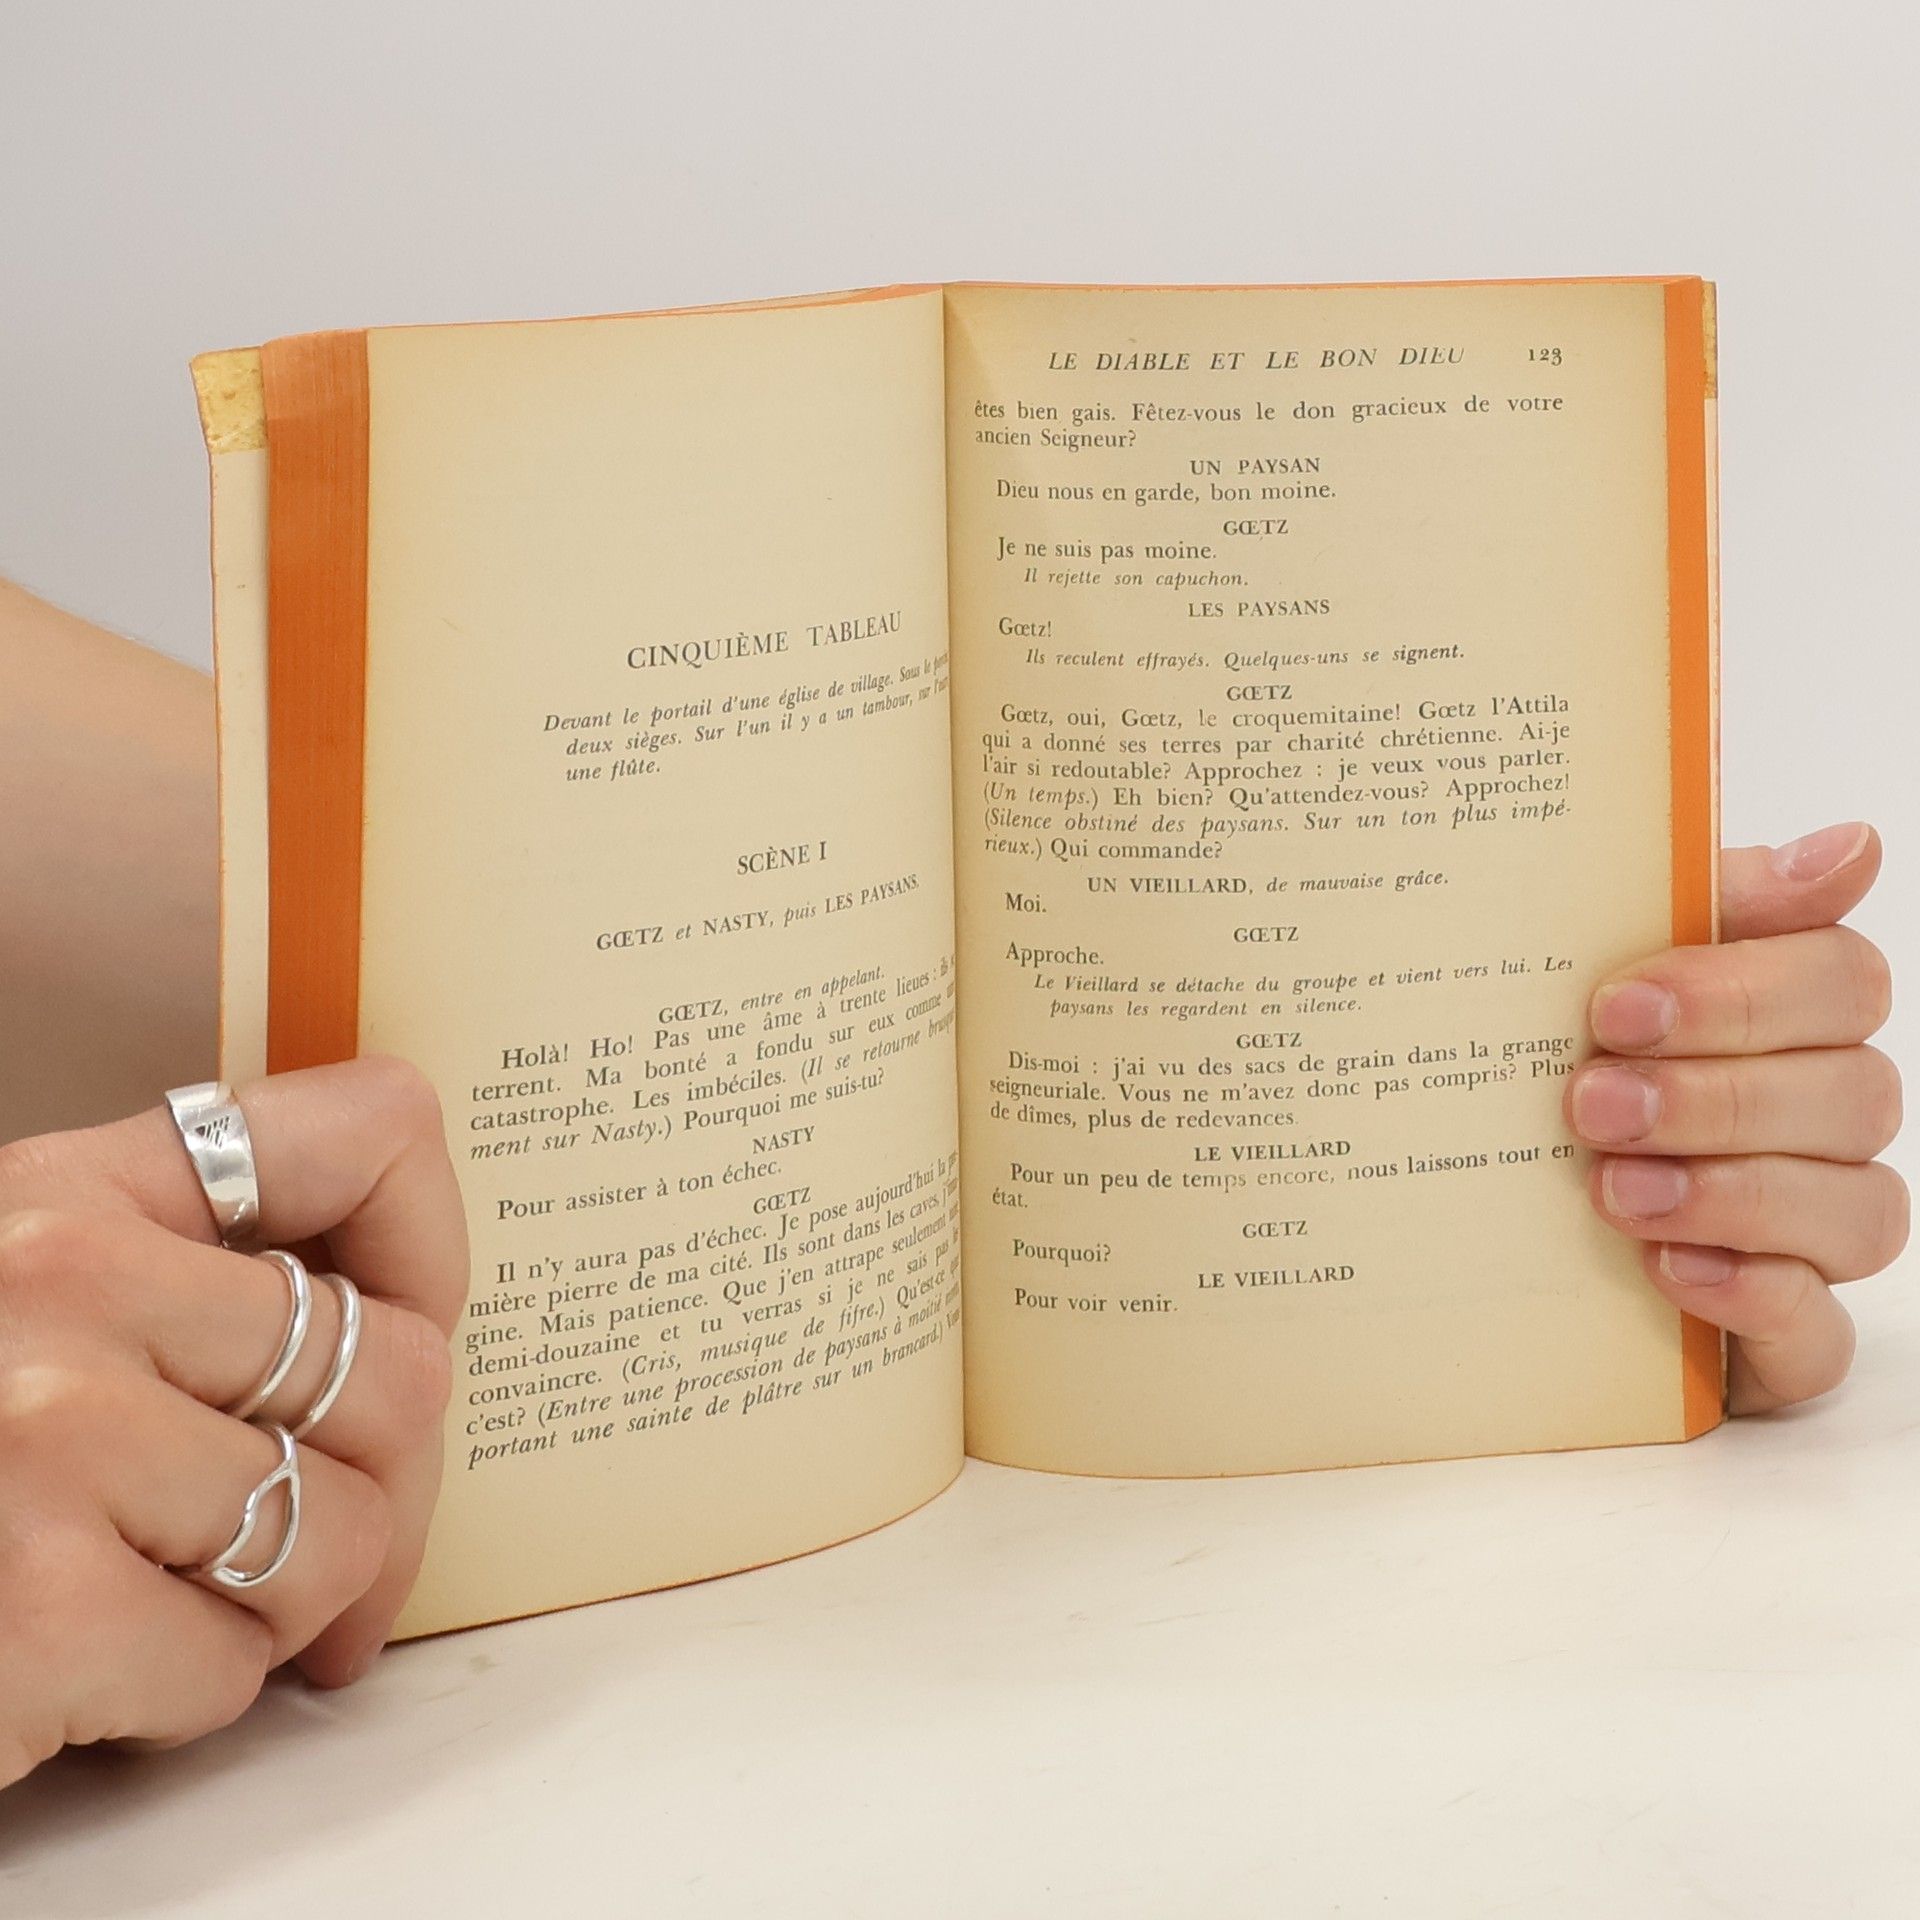 CINQUIÈME TABLEAU
Devant le portail d'une église de village. Sous le
deux sièges. Sur l'un il y a un tambour, sur
une flûte.
SCÈNE I
GŒTZ et NASTY, puis LES PAYSANS.
GŒTZ, entre en appelant.
Holà! Ho! Pas une âme à trente lieues : ils
terrent. Ma bonté a fondu sur eux comme
catastrophe. Les imbéciles. (Il se retourne
ment sur Nasty.) Pourquoi me suis-tu?
NASTY
Pour assister à ton échec.
GŒTZ
Il n'y aura pas d'échec. Je pose aujourd'hui la
mière pierre de ma cité. Ils sont dans les caves,
gine. Mais patience. Que j'en attrape seulement
demi-douzaine et tu verras si je ne sais pas
convaincre. (Cris, musique de fifre.) Qu'est-ce
c'est? (Entre une procession de paysans à moitié
portant une sainte de plâtre sur un brancard.)
LE DIABLE ET LE BON DIEU 123
êtes bien gais. Fêtez-vous le don gracieux de votre
ancien Seigneur?
UN PAYSAN
Dieu nous en garde, bon moine.
GŒTZ
Je ne suis pas moine.
Il rejette son capuchon.
LES PAYSANS
Gœtz!
Ils reculent effrayés. Quelques-uns se signent.
GŒTZ
Gœtz, oui, Gœtz, le croquemitaine! Gœtz l'Attila
qui a donné ses terres par charité chrétienne. Ai-je
l'air si redoutable? Approchez : je veux vous parler.
(Un temps.) Eh bien? Qu'attendez-vous? Approchez!
(Silence obstiné des paysans. Sur un ton plus impé-
rieux.) Qui commande?
UN VIEILLARD, de mauvaise grâce.
Moi.
GŒTZ
Approche.
Le Vieillard se détache du groupe et vient vers lui. Les
paysans les regardent en silence.
GŒTZ
Dis-moi : j'ai vu des sacs de grain dans la grange
seigneuriale. Vous ne m'avez donc pas compris? Plus
de dîmes, plus de redevances.
LE VIEILLARD
Pour un peu de temps encore, nous laissons tout en
état.
GŒTZ
Pourquoi?
LE VIEILLARD
Pour voir venir.